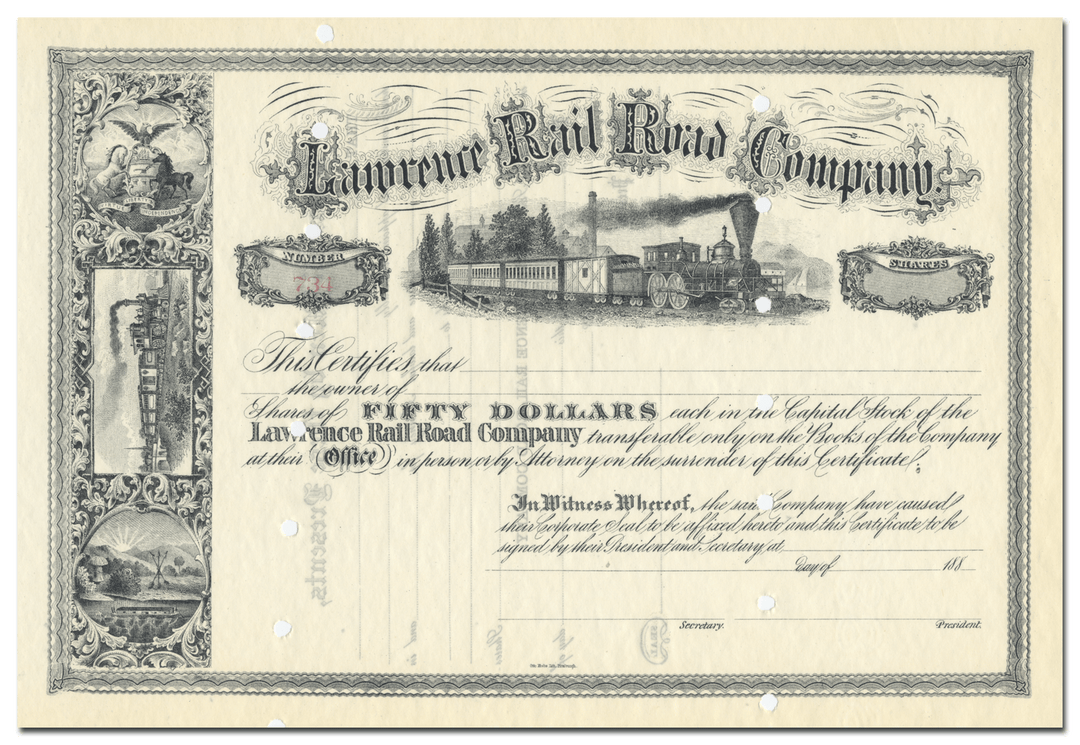 Lawrence Rail Road Company.
NUMBER
734
SHARES
This Certifies that
the owner of
Shares of FIFTY DOLLARS each in the Capital Stock of the
Lawrence Rail Road Company transferable only on the Books of the Company
at their Office in person or by Attorney on the surrender of this Certificate.
In Witness Whereof, the said Company have caused
their Corporate Seal to be affixed hereto and this Certificate to be
signed by their President and Secretary at
day of 188
Secretary. President.